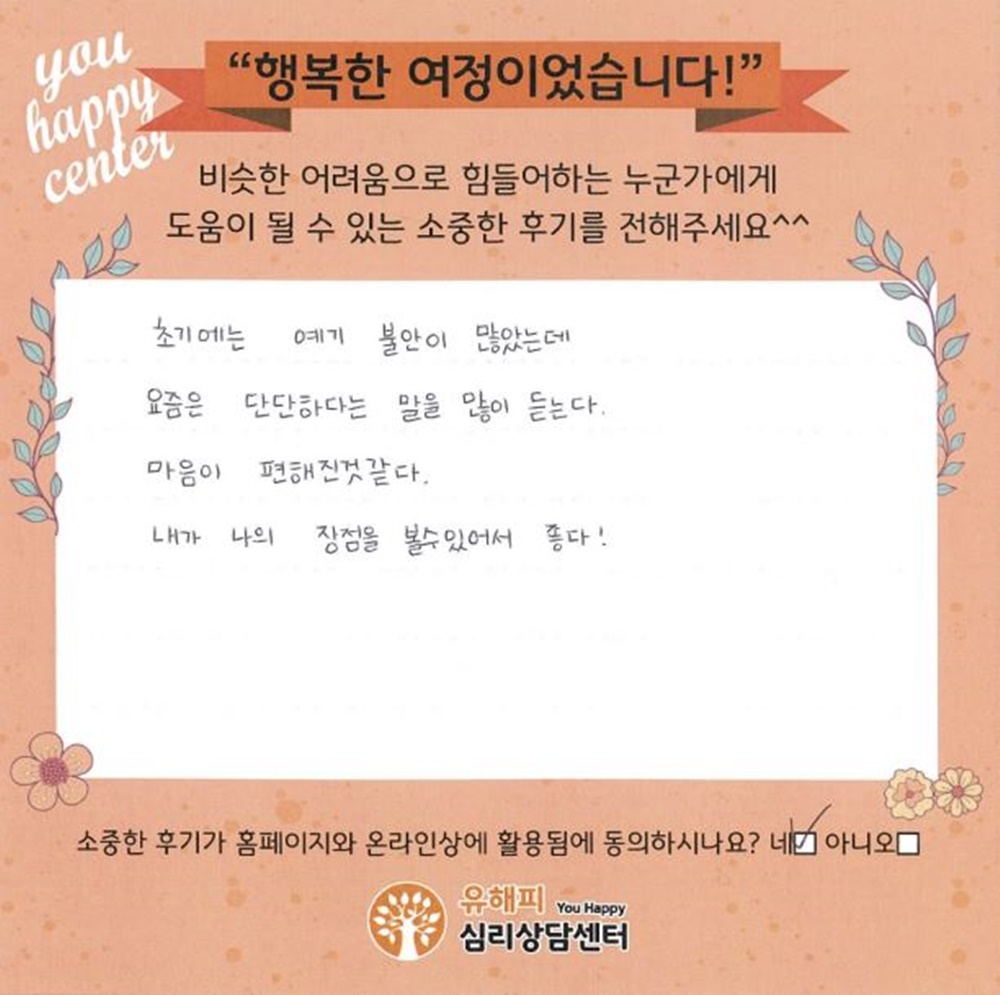 you
happy
center
“행복한 여정이었습니다!”
비슷한 어려움으로 힘들어하는 누군가에게
도움이 될 수 있는 소중한 후기를 전해주세요^^
초기에는 예기 불안이 많았는데
요즘은 단단하다는 말을 많이 듣는다.
마음이 편해진것같다.
내가 나의 장점을 볼수있어서 좋다!
소중한 후기가 홈페이지와 온라인상에 활용됨에 동의하시나요? 네☑ 아니오☐
유해피 You Happy
심리상담센터